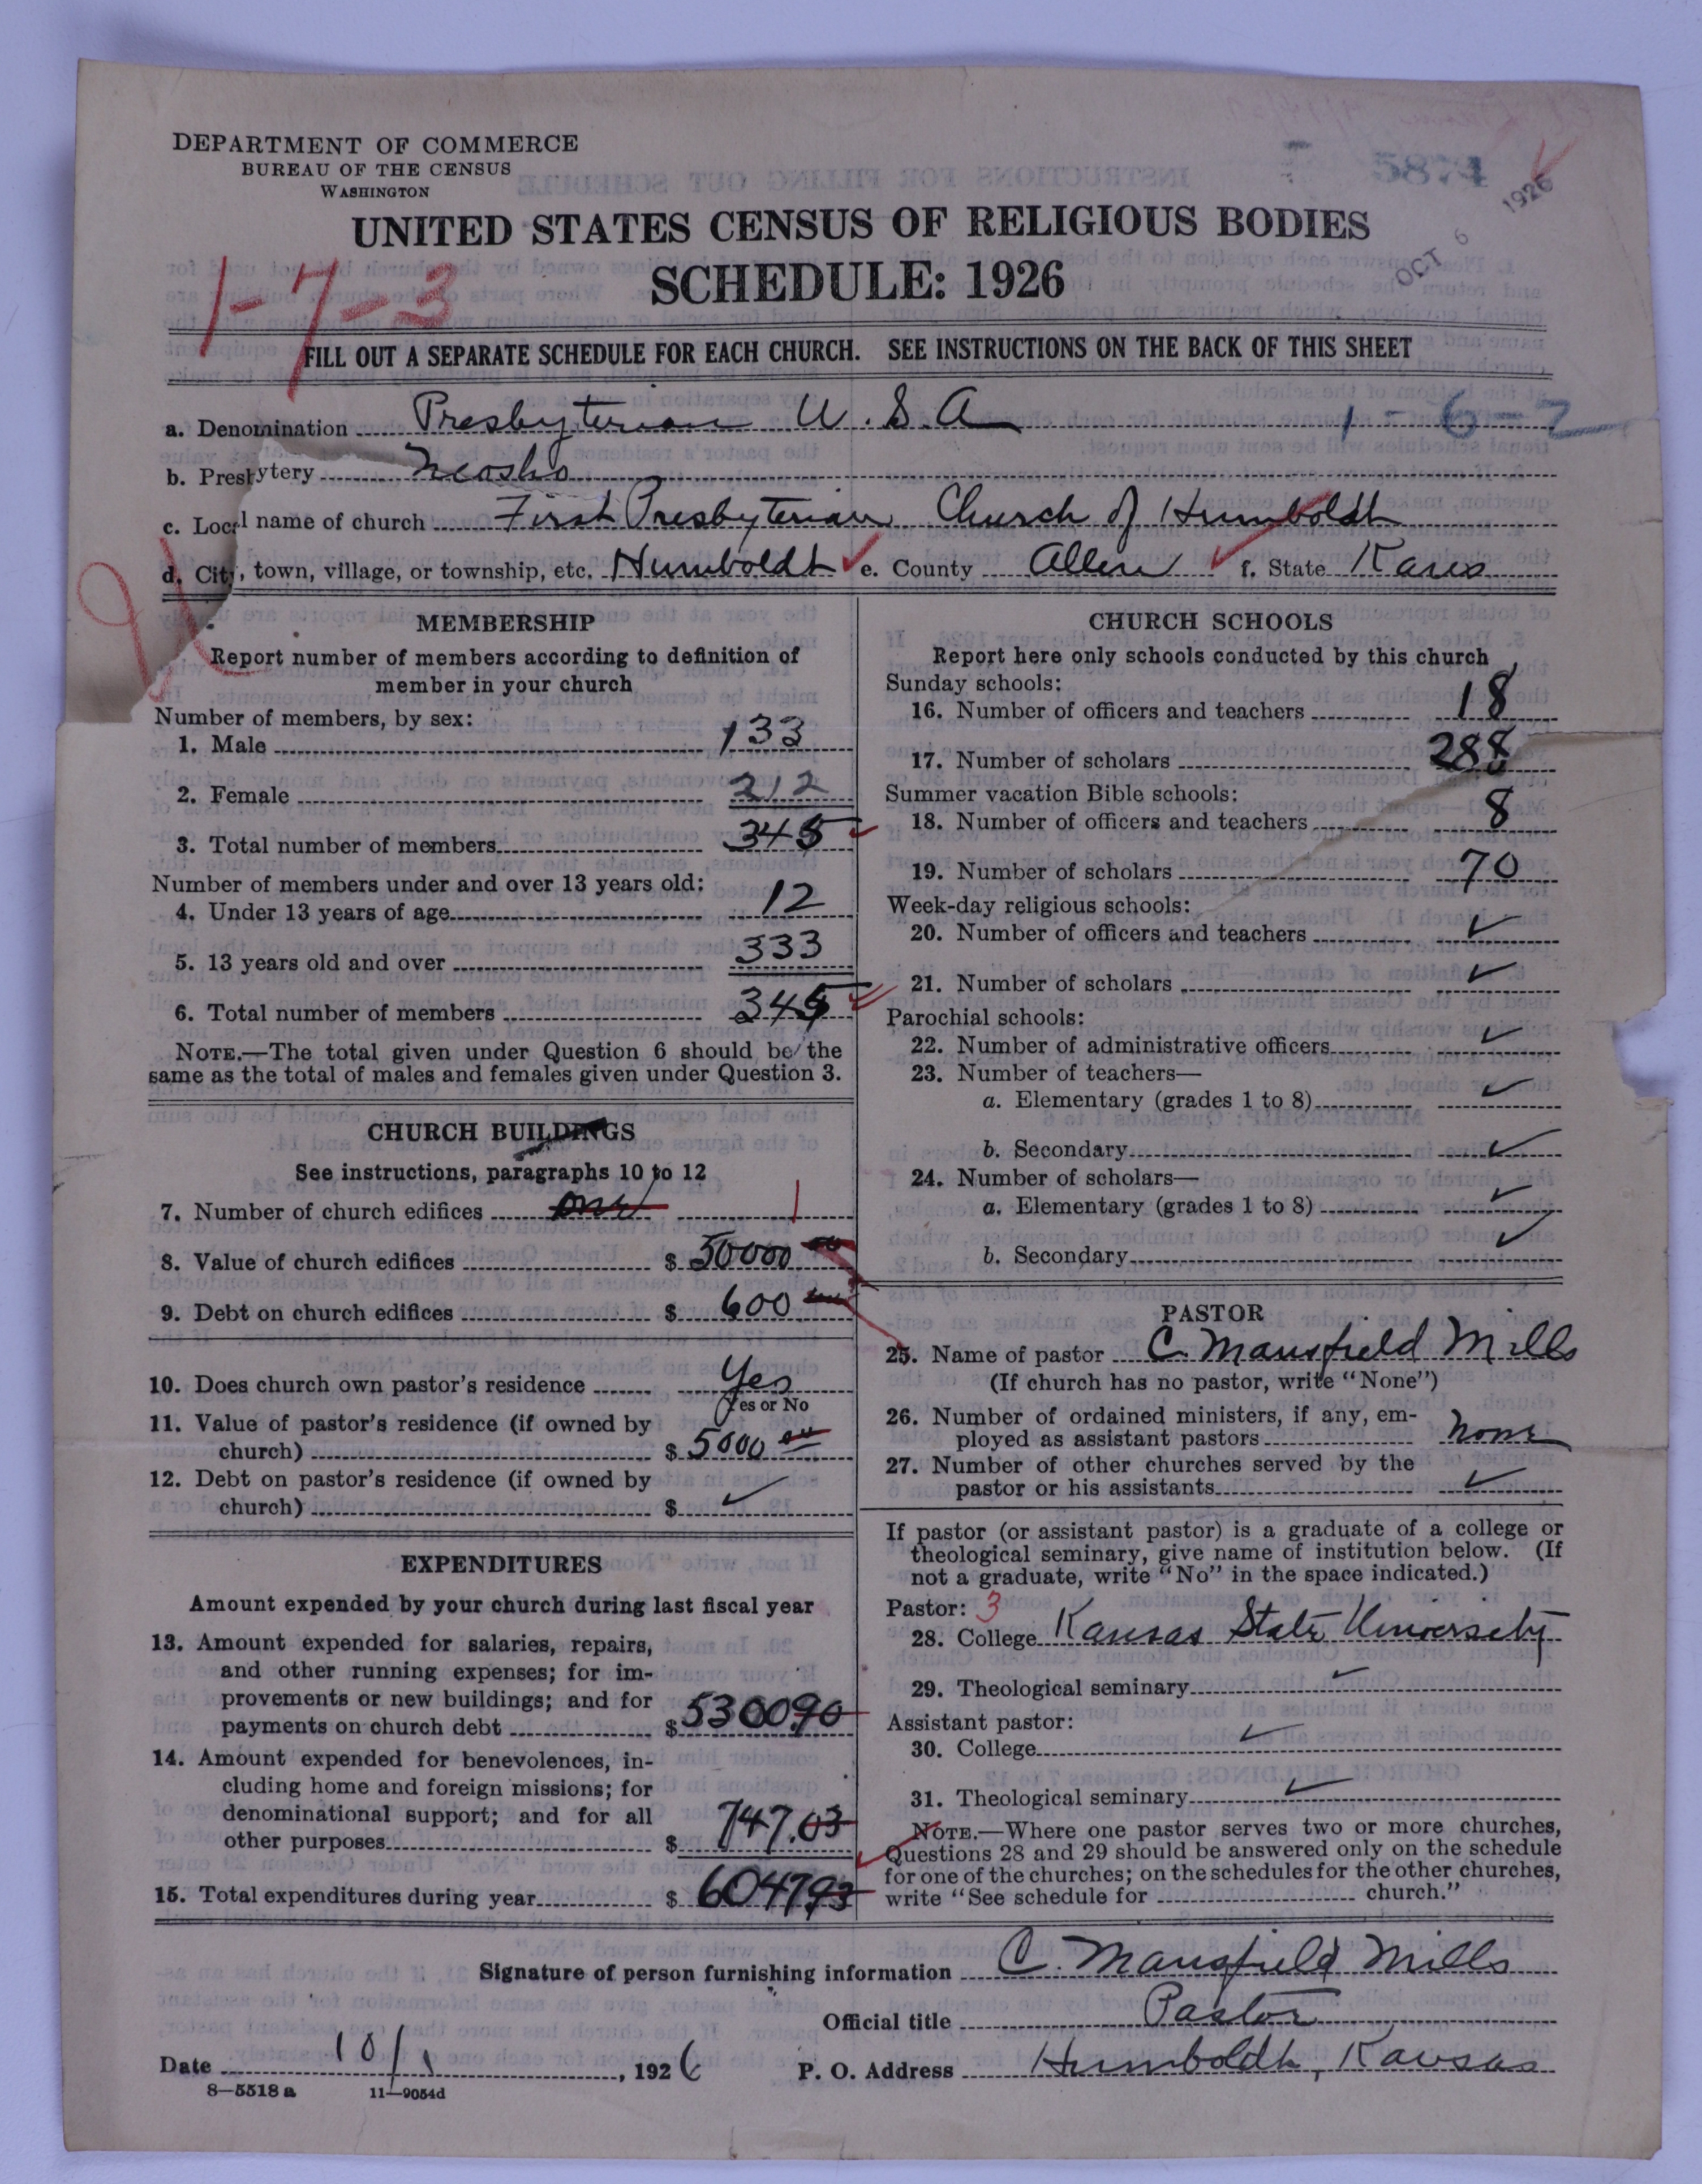 DEPARTMENT OF COMMERCE
BUREAU OF THE CENSUS
WASHINGTON
5874
OCT 6 1926
UNITED STATES CENSUS OF RELIGIOUS BODIES
SCHEDULE: 1926
1-7-3
FILL OUT A SEPARATE SCHEDULE FOR EACH CHURCH. SEE INSTRUCTIONS ON THE BACK OF THIS SHEET
a. Denomination Presbyterian U.S.A 1-6-2
b. Presbytery Neosho
c. Local name of church First Presbyterian Church of Humboldt
d. City, town, village, or township, etc. Humboldt e. County Allen f. State Kans
MEMBERSHIP
Report number of members according to definition of
member in your church
Number of members, by sex:
1. Male 133
2. Female 212
3. Total number of members 345
Number of members under and over 13 years old:
4. Under 13 years of age 12
5. 13 years old and over 333
6. Total number of members 345
NOTE.—The total given under Question 6 should be the
same as the total of males and females given under Question 3.
CHURCH BUILDINGS
See instructions, paragraphs 10 to 12
7. Number of church edifices one 1
8. Value of church edifices $ 50000
9. Debt on church edifices $ 600
10. Does church own pastor's residence Yes
Yes or No
11. Value of pastor's residence (if owned by
church) $ 5000
12. Debt on pastor's residence (if owned by
church) $ ✓
EXPENDITURES
Amount expended by your church during last fiscal year
13. Amount expended for salaries, repairs,
and other running expenses; for im-
provements or new buildings; and for
payments on church debt $ 5300.90
14. Amount expended for benevolences, in-
cluding home and foreign missions; for
denominational support; and for all
other purposes $ 747.03
15. Total expenditures during year $ 6047.93
CHURCH SCHOOLS
Report here only schools conducted by this church
Sunday schools:
16. Number of officers and teachers 18
17. Number of scholars 288
Summer vacation Bible schools:
18. Number of officers and teachers 8
19. Number of scholars 70
Week-day religious schools:
20. Number of officers and teachers ✓
21. Number of scholars ✓
Parochial schools:
22. Number of administrative officers ✓
23. Number of teachers—
a. Elementary (grades 1 to 8) ✓
b. Secondary ✓
24. Number of scholars—
a. Elementary (grades 1 to 8) ✓
b. Secondary ✓
PASTOR
25. Name of pastor C. Mansfield Mills
(If church has no pastor, write "None")
26. Number of ordained ministers, if any, em-
ployed as assistant pastors None
27. Number of other churches served by the
pastor or his assistants ✓
If pastor (or assistant pastor) is a graduate of a college or
theological seminary, give name of institution below. (If
not a graduate, write "No" in the space indicated.)
Pastor: 3
28. College Kansas State University
29. Theological seminary ✓
Assistant pastor:
30. College ✓
31. Theological seminary ✓
NOTE.—Where one pastor serves two or more churches,
Questions 28 and 29 should be answered only on the schedule
for one of the churches; on the schedules for the other churches,
write "See schedule for church."
Signature of person furnishing information C. Mansfield Mills
Official title Pastor
Date 10/1, 1926 P. O. Address Humboldt, Kansas
8—5518 a 11—9054d